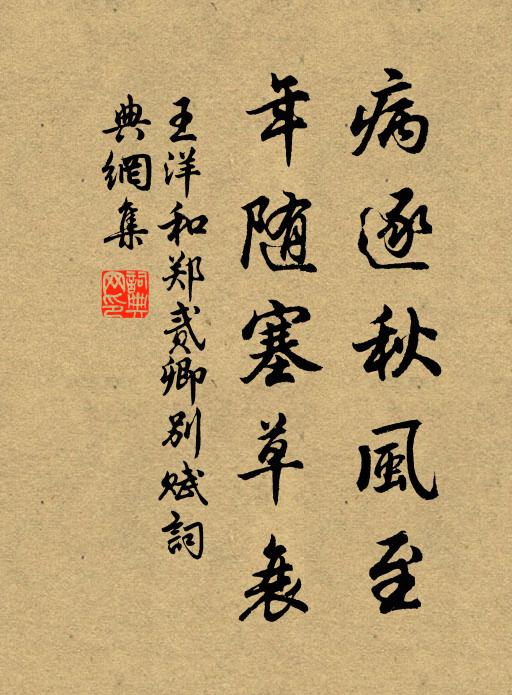 病逐秋風至
年随塞草衰
王洋和郑贰卿别赋詞
典網集
詞典
网印